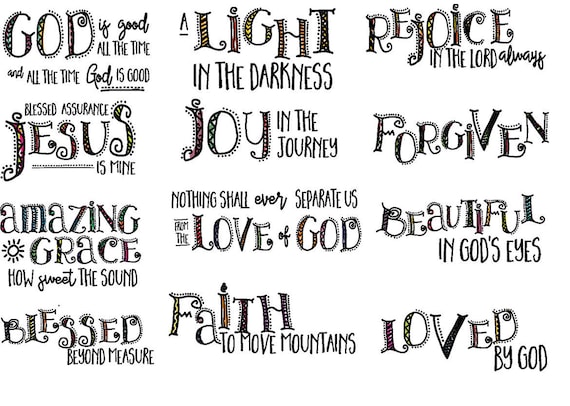 GOD is good
ALL THE TIME
and ALL THE TIME God IS GOOD
A LIGHT
IN THE DARKNESS
REJOICE
IN THE LORD always
BLESSED ASSURANCE
JESUS
IS MINE
JOY IN THE
JOURNEY
FORGIVEN
amazing
GRACE
HOW sweet THE SOUND
NOTHING SHALL ever SEPARATE US
FROM THE LOVE of GOD
BEAUTIFUL
IN GOD'S EYES
BLESSED
BEYOND MEASURE
FAITH
TO MOVE MOUNTAINS
LOVED
BY GOD